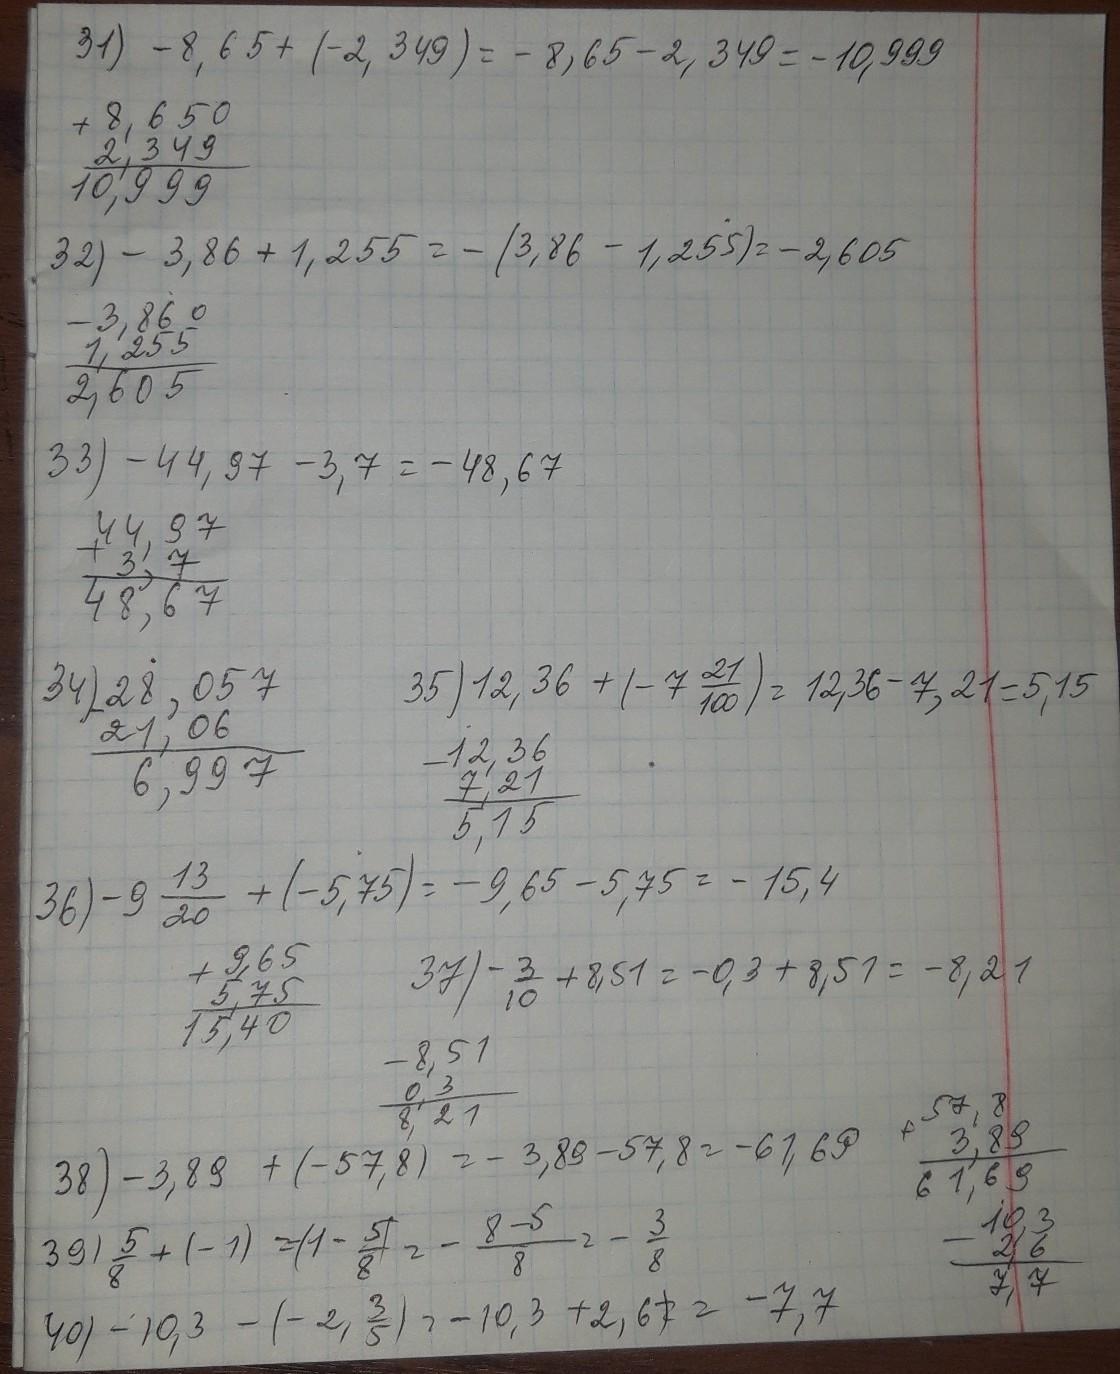 31) -8,65+(-2,349)=-8,65-2,349=-10,999
+8,650
2,349
10,999
32) -3,86+1,255=-(3,86-1,255)=-2,605
-3,860
1,255
2,605
33) -44,97-3,7=-48,67
+44,97
3,7
48,67
34) -28,057
21,06
6,997
35) 12,36+(-7 21/100)=12,36-7,21=5,15
-12,36
7,21
5,15
36) -9 13/20+(-5,75)=-9,65-5,75=-15,4
+9,65
5,75
15,40
37) -3/10+8,51=-0,3+8,51=-8,21
-8,51
0,3
8,21
38) -3,89+(-57,8)=-3,89-57,8=-61,69
+57,8
3,89
61,69
39) 5/8+(-1)=(1-5/8)=-(8-5)/8=-3/8
-10,3
2,6
7,7
40) -10,3-(-2,3/5)=-10,3+2,6=-7,7